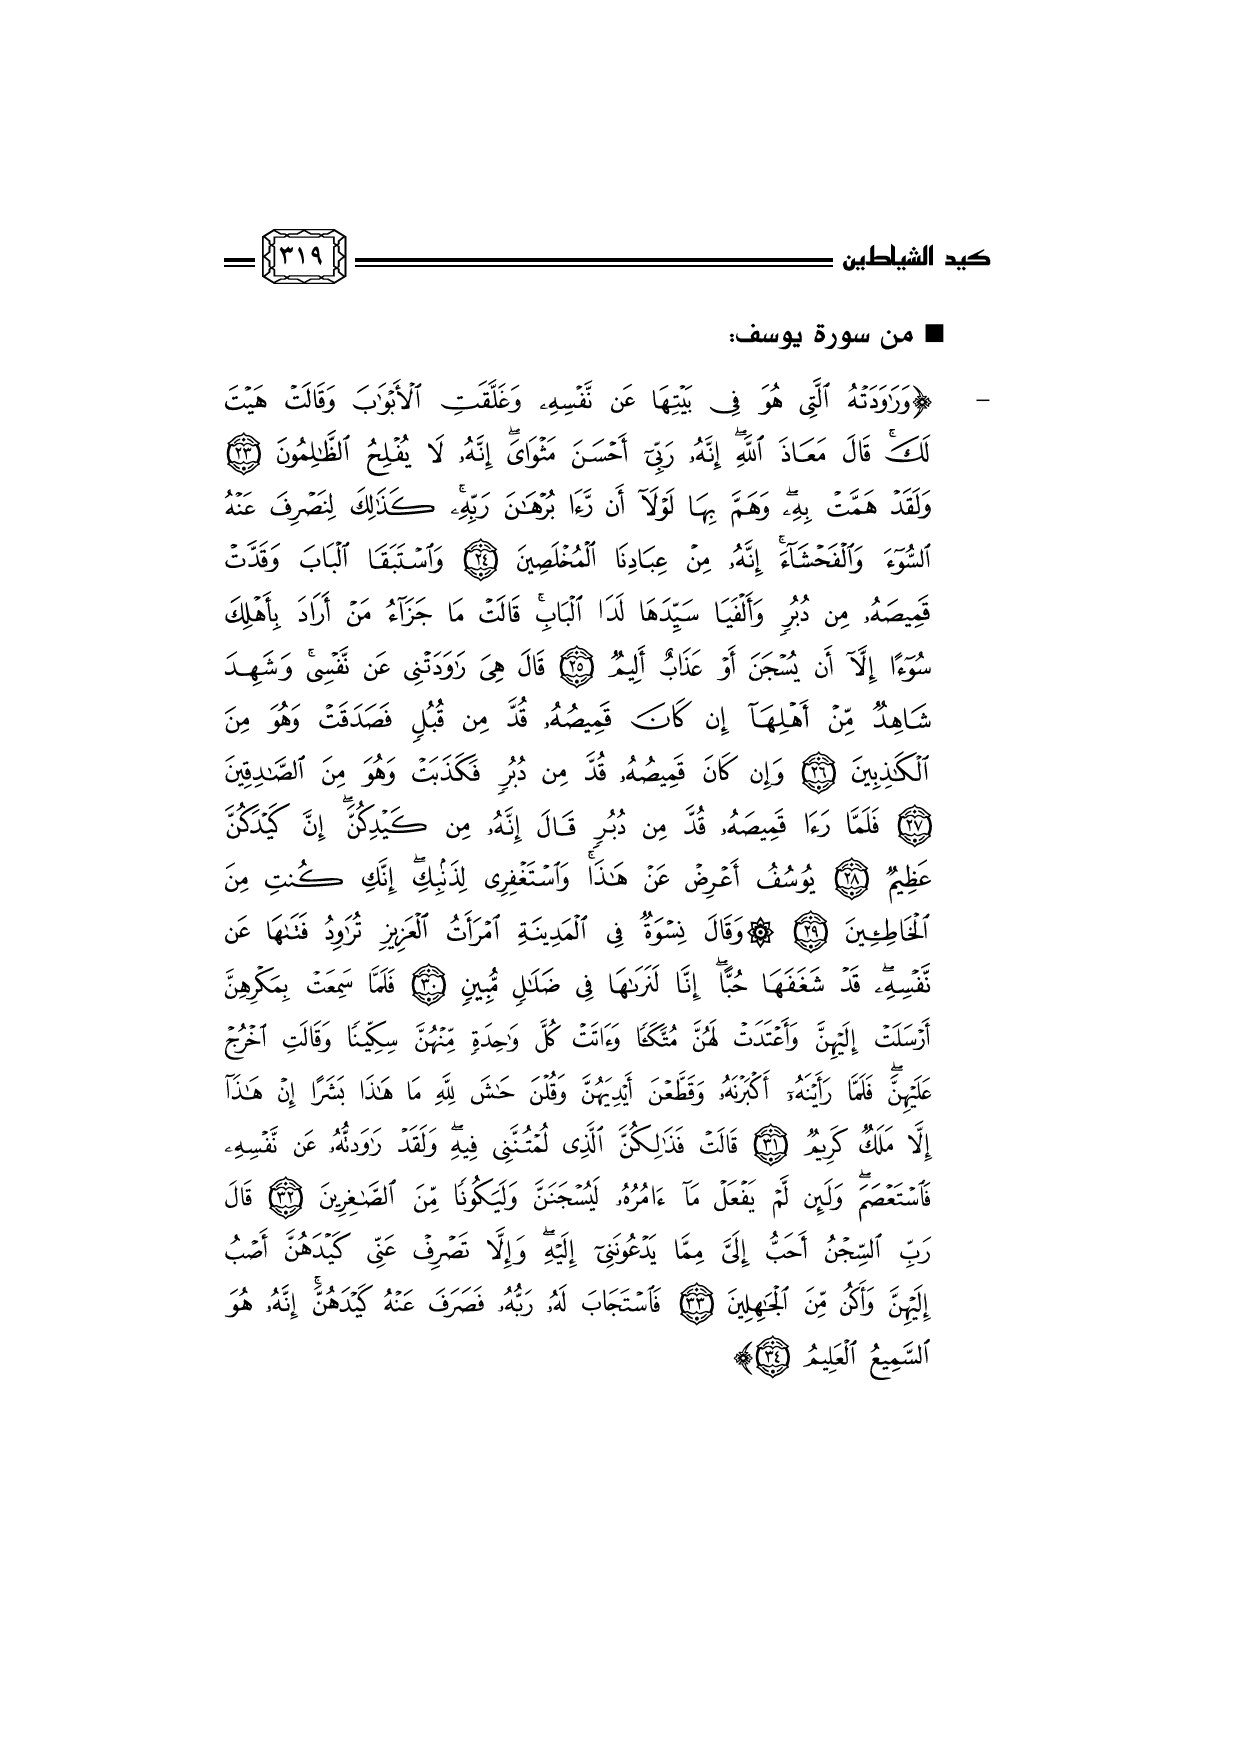 كيد الشياطين ٣١٩
■ من سورة يوسف:
- ﴿وَرَٰوَدَتْهُ ٱلَّتِى هُوَ فِى بَيْتِهَا عَن نَّفْسِهِۦ وَغَلَّقَتِ ٱلْأَبْوَٰبَ وَقَالَتْ هَيْتَ
لَكَ ۚ قَالَ مَعَاذَ ٱللَّهِ ۖ إِنَّهُۥ رَبِّىٓ أَحْسَنَ مَثْوَاىَ ۖ إِنَّهُۥ لَا يُفْلِحُ ٱلظَّٰلِمُونَ ٢٣
وَلَقَدْ هَمَّتْ بِهِۦ ۖ وَهَمَّ بِهَا لَوْلَآ أَن رَّءَا بُرْهَٰنَ رَبِّهِۦ ۚ كَذَٰلِكَ لِنَصْرِفَ عَنْهُ
ٱلسُّوٓءَ وَٱلْفَحْشَآءَ ۚ إِنَّهُۥ مِنْ عِبَادِنَا ٱلْمُخْلَصِينَ ٢٤ وَٱسْتَبَقَا ٱلْبَابَ وَقَدَّتْ
قَمِيصَهُۥ مِن دُبُرٍ وَأَلْفَيَا سَيِّدَهَا لَدَا ٱلْبَابِ ۚ قَالَتْ مَا جَزَآءُ مَنْ أَرَادَ بِأَهْلِكَ
سُوٓءًا إِلَّآ أَن يُسْجَنَ أَوْ عَذَابٌ أَلِيمٌ ٢٥ قَالَ هِىَ رَٰوَدَتْنِى عَن نَّفْسِى ۚ وَشَهِدَ
شَاهِدٌ مِّنْ أَهْلِهَآ إِن كَانَ قَمِيصُهُۥ قُدَّ مِن قُبُلٍ فَصَدَقَتْ وَهُوَ مِنَ
ٱلْكَٰذِبِينَ ٢٦ وَإِن كَانَ قَمِيصُهُۥ قُدَّ مِن دُبُرٍ فَكَذَبَتْ وَهُوَ مِنَ ٱلصَّٰدِقِينَ
٢٧ فَلَمَّا رَءَا قَمِيصَهُۥ قُدَّ مِن دُبُرٍ قَالَ إِنَّهُۥ مِن كَيْدِكُنَّ ۖ إِنَّ كَيْدَكُنَّ
عَظِيمٌ ٢٨ يُوسُفُ أَعْرِضْ عَنْ هَٰذَا ۚ وَٱسْتَغْفِرِى لِذَنۢبِكِ ۖ إِنَّكِ كُنتِ مِنَ
ٱلْخَاطِـِٔينَ ٢٩ ۞ وَقَالَ نِسْوَةٌ فِى ٱلْمَدِينَةِ ٱمْرَأَتُ ٱلْعَزِيزِ تُرَٰوِدُ فَتَىٰهَا عَن
نَّفْسِهِۦ ۖ قَدْ شَغَفَهَا حُبًّا ۖ إِنَّا لَنَرَىٰهَا فِى ضَلَٰلٍ مُّبِينٍ ٣٠ فَلَمَّا سَمِعَتْ بِمَكْرِهِنَّ
أَرْسَلَتْ إِلَيْهِنَّ وَأَعْتَدَتْ لَهُنَّ مُتَّكَـًٔا وَءَاتَتْ كُلَّ وَٰحِدَةٍ مِّنْهُنَّ سِكِّينًا وَقَالَتِ ٱخْرُجْ
عَلَيْهِنَّ ۖ فَلَمَّا رَأَيْنَهُۥٓ أَكْبَرْنَهُۥ وَقَطَّعْنَ أَيْدِيَهُنَّ وَقُلْنَ حَٰشَ لِلَّهِ مَا هَٰذَا بَشَرًا إِنْ هَٰذَآ
إِلَّا مَلَكٌ كَرِيمٌ ٣١ قَالَتْ فَذَٰلِكُنَّ ٱلَّذِى لُمْتُنَّنِى فِيهِ ۖ وَلَقَدْ رَٰوَدتُّهُۥ عَن نَّفْسِهِۦ
فَٱسْتَعْصَمَ ۖ وَلَئِن لَّمْ يَفْعَلْ مَآ ءَامُرُهُۥ لَيُسْجَنَنَّ وَلَيَكُونًا مِّنَ ٱلصَّٰغِرِينَ ٣٢ قَالَ
رَبِّ ٱلسِّجْنُ أَحَبُّ إِلَىَّ مِمَّا يَدْعُونَنِىٓ إِلَيْهِ ۖ وَإِلَّا تَصْرِفْ عَنِّى كَيْدَهُنَّ أَصْبُ
إِلَيْهِنَّ وَأَكُن مِّنَ ٱلْجَٰهِلِينَ ٣٣ فَٱسْتَجَابَ لَهُۥ رَبُّهُۥ فَصَرَفَ عَنْهُ كَيْدَهُنَّ ۚ إِنَّهُۥ هُوَ
ٱلسَّمِيعُ ٱلْعَلِيمُ ٣٤﴾